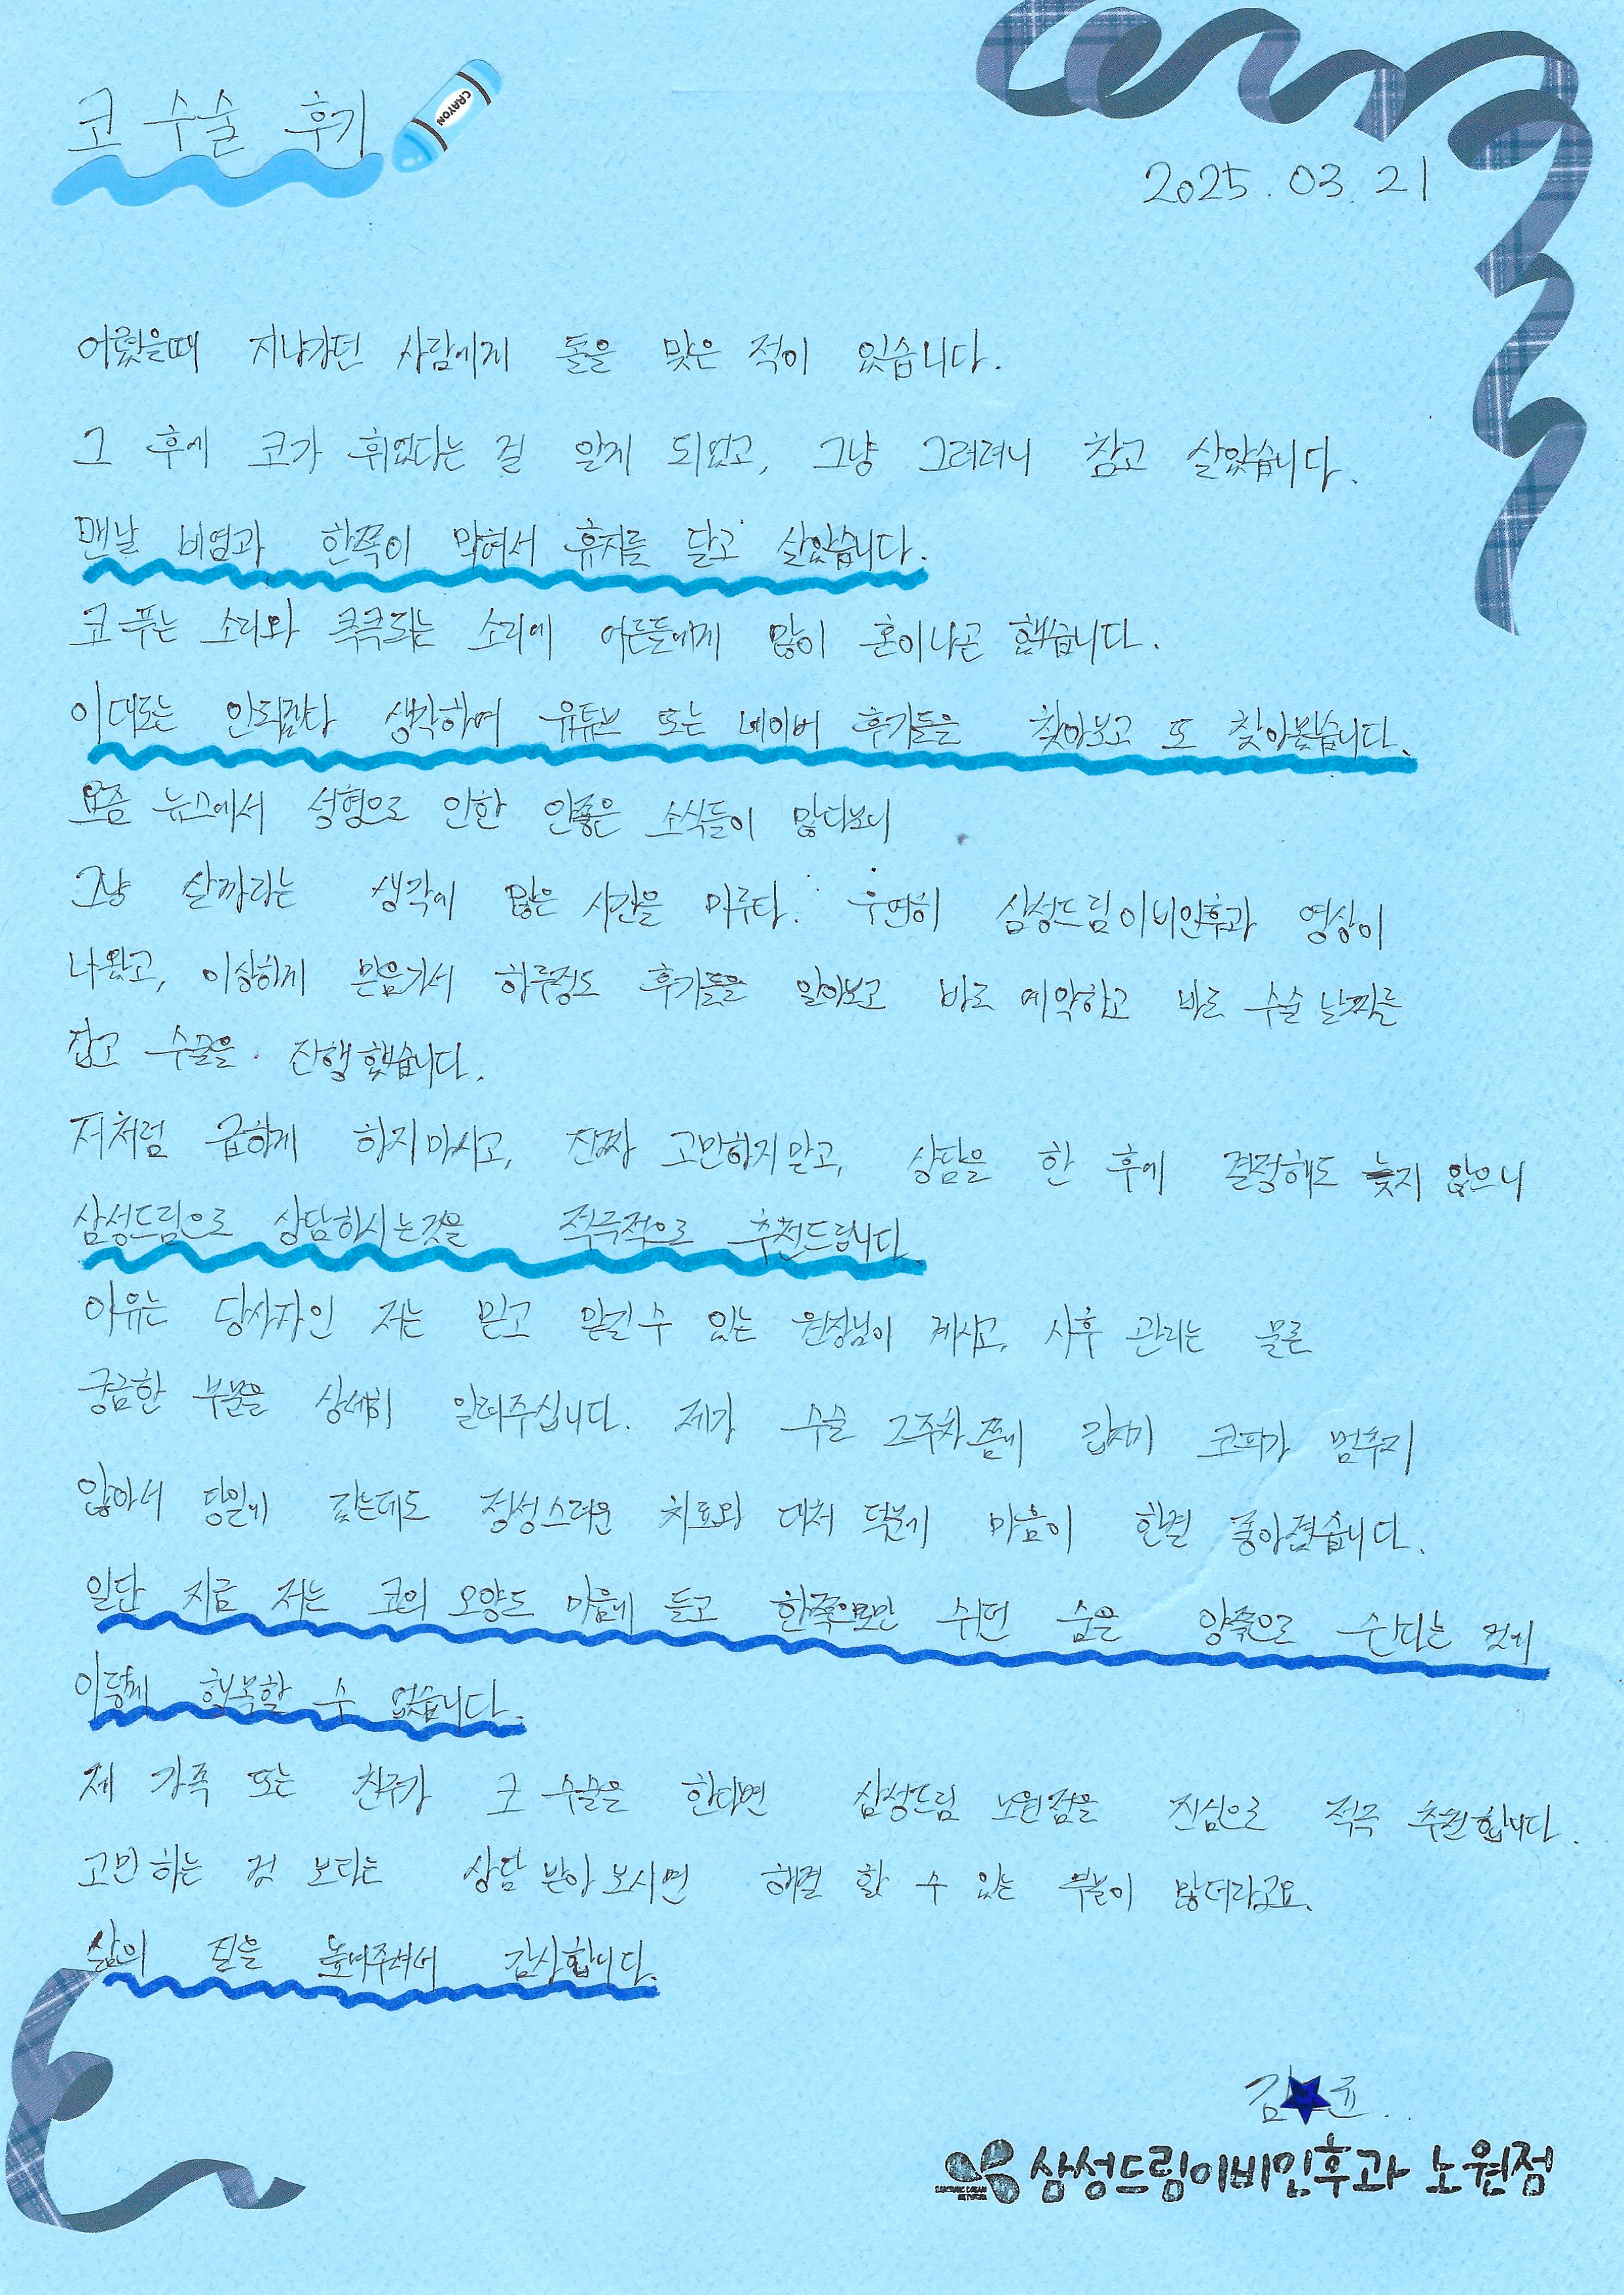 코 수술 후기
CRAYON
2025. 03. 21
어렸을때 지나가던 사람에게 돌을 맞은 적이 있습니다.
그 후에 코가 휘었다는 걸 알게 되었고, 그냥 그러려니 참고 살았습니다.
맨날 비염과 한쪽이 막혀서 휴지를 달고 살았습니다.
코 푸는 소리와 킁킁되는 소리에 어른들에게 많이 혼이나곤 했습니다.
이대로는 안되겠다 생각하여 유튜브 또는 네이버 후기들을 찾아보고 또 찾아봤습니다.
요즘 뉴스에서 성형으로 인한 안좋은 소식들이 많다보니
그냥 살까라는 생각에 많은 시간을 미루다. 우연히 삼성드림이비인후과 영상이
나왔고, 이상하게 믿음가서 하루정도 후기들을 알아보고 바로 예약하고 바로 수술 날짜를
잡고 수술을 진행했습니다.
저처럼 급하게 하지마시고, 진짜 고민하지말고, 상담을 한 후에 결정해도 늦지 않으니
삼성드림으로 상담하시는것을 적극적으로 추천드립니다
이유는 당사자인 저는 믿고 맡길수 있는 원장님이 계시고, 사후 관리는 물론
궁금한 부분을 상세히 알려주십니다. 제가 수술 2주차쯤에 갑자기 코피가 멈추지
않아서 당일에 갔는데도 정성스러운 치료와 대처 덕분에 마음이 한결 좋아졌습니다.
일단 지금 저는 코의 모양도 마음에 들고 한쪽으로만 쉬던 숨을 양쪽으로 쉰다는 것에
이렇게 행복할 수 없습니다.
제 가족 또는 친구가 코 수술을 한다면 삼성드림 노원점을 진심으로 적극 추천합니다.
고민하는 것 보다는 상담 받아 보시면 해결 할 수 있는 부분이 많더라고요.
삶의 질을 높여주셔서 감사합니다.
김 윤..
삼성드림이비인후과 노원점